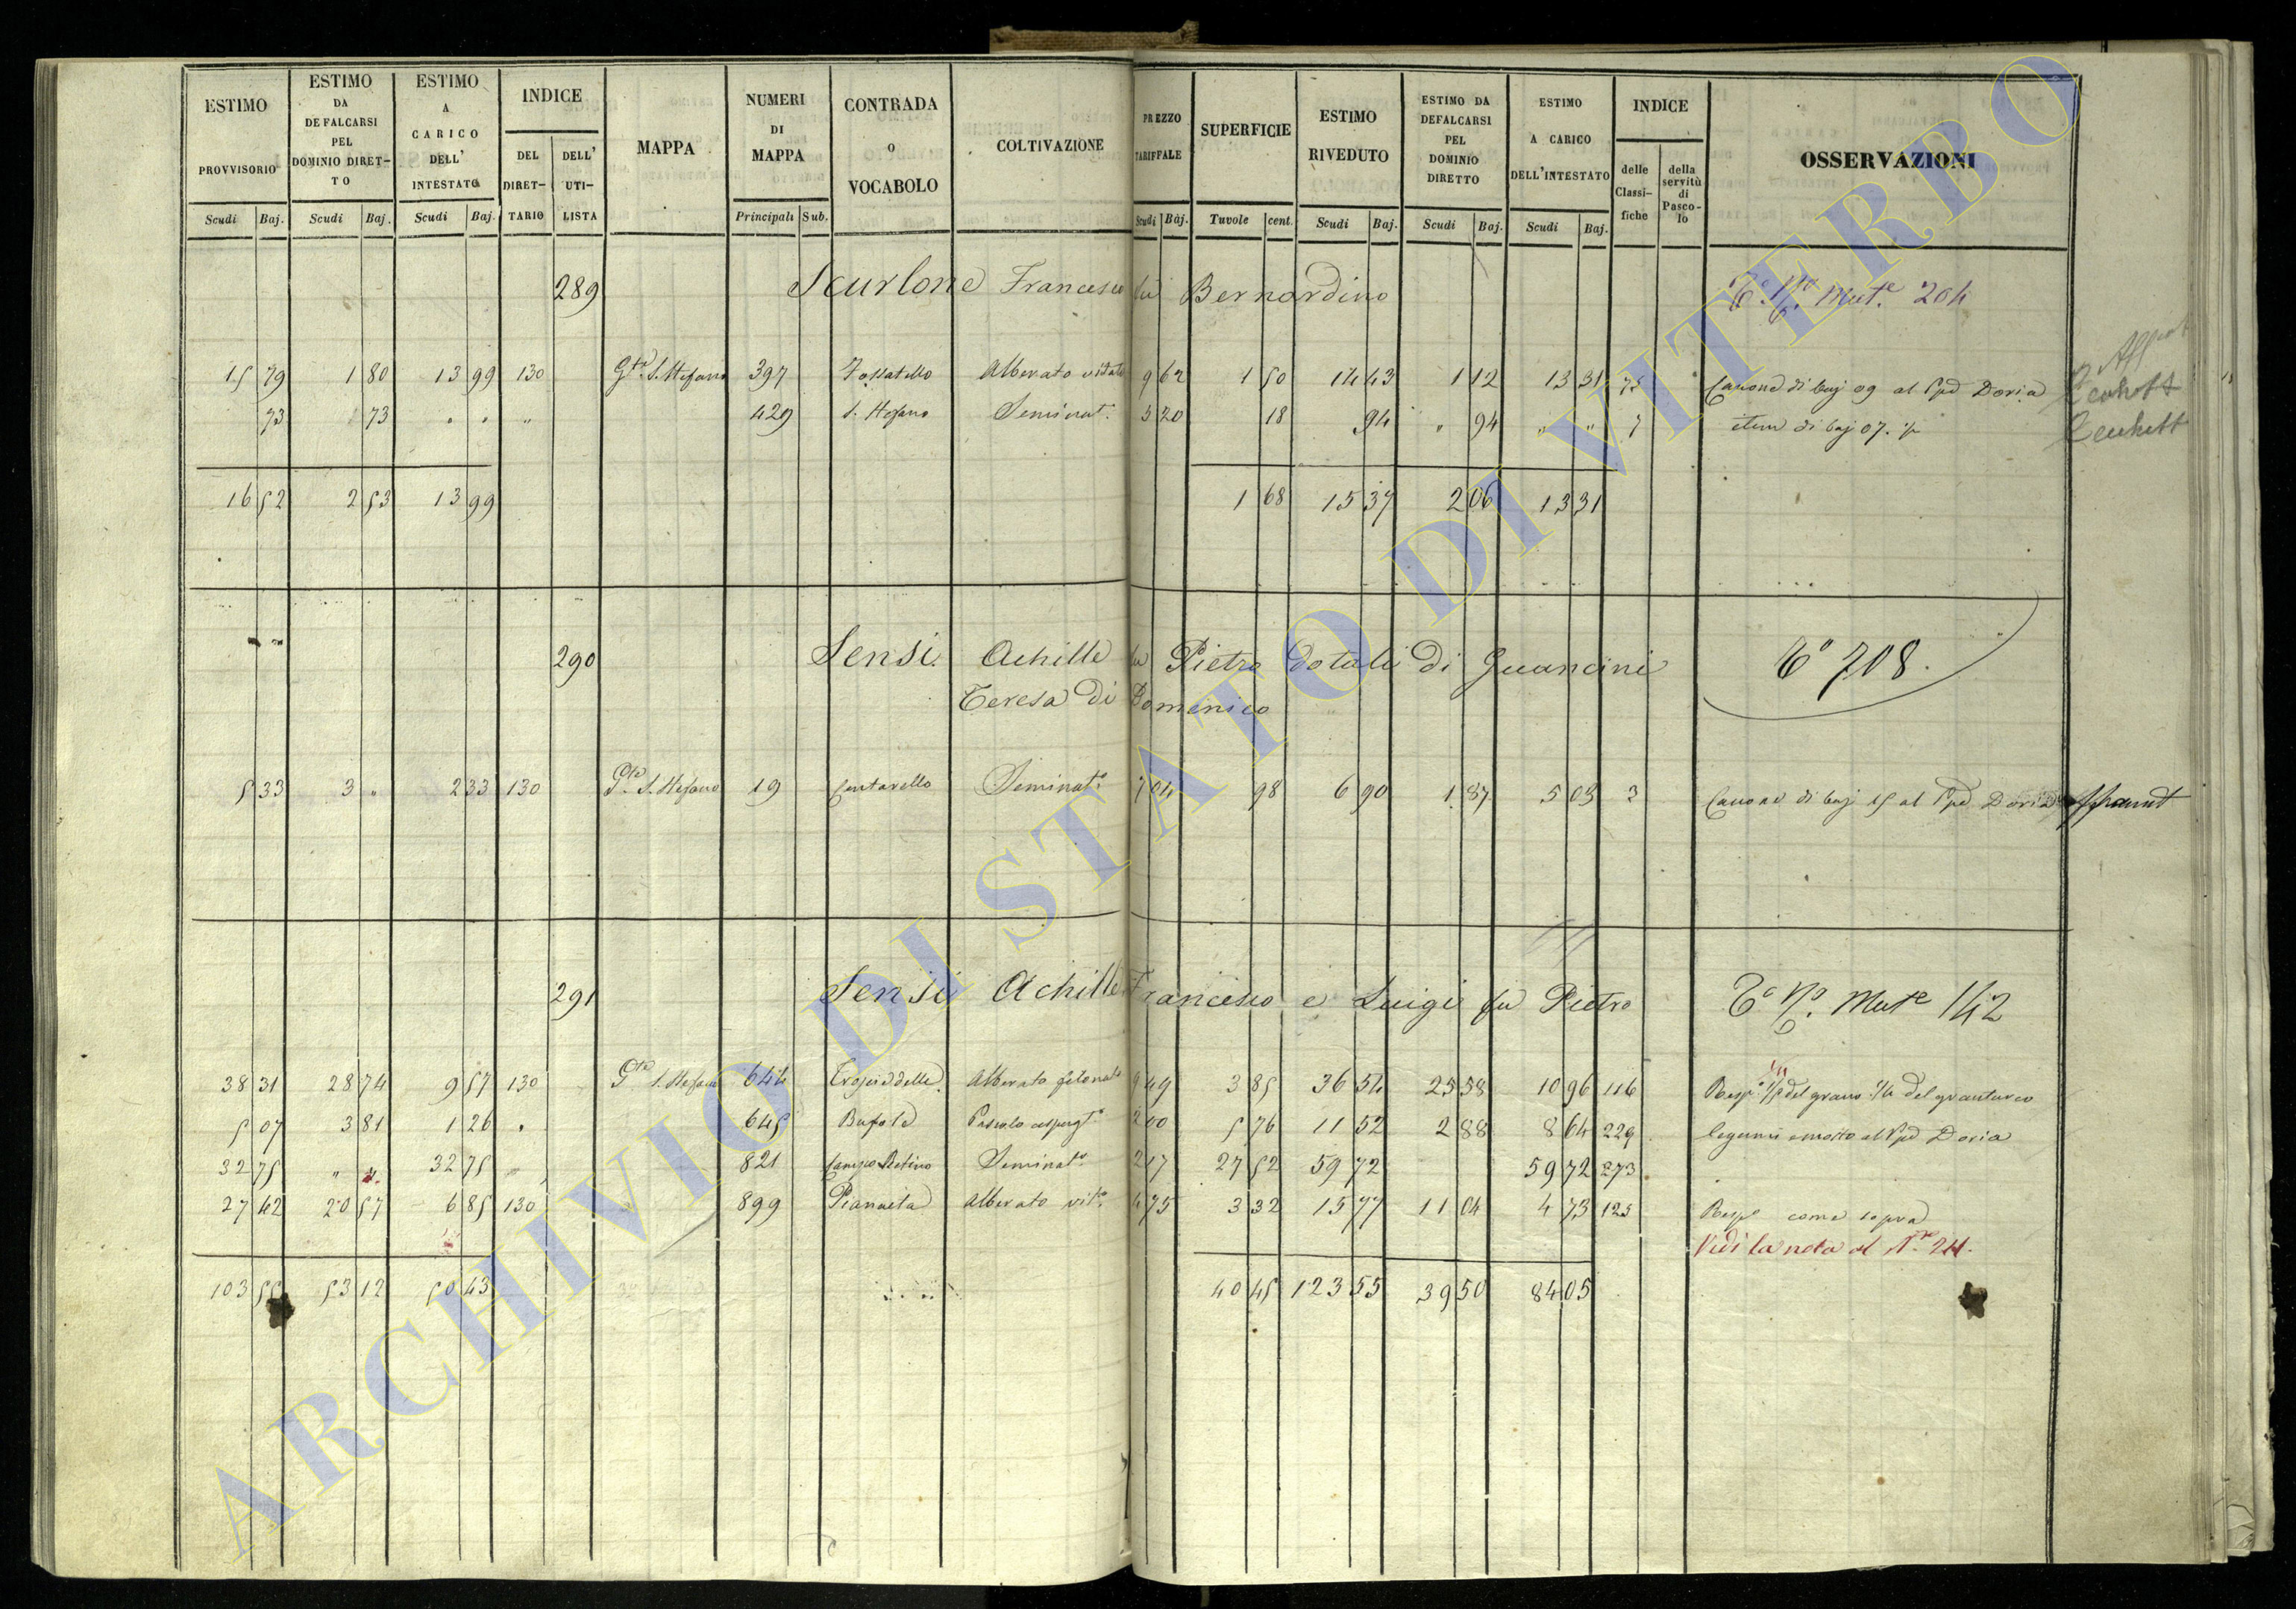 ESTIMO PROVVISORIO Scudi Baj.
ESTIMO DA DEFALCARSI PEL DOMINIO DIRET-TO Scudi Baj.
ESTIMO A CARICO DELL' INTESTATO Scudi Baj.
INDICE DEL DIRET-TARIO DELL' UTI-LISTA
MAPPA
NUMERI DI MAPPA Principali Sub.
CONTRADA O VOCABOLO
COLTIVAZIONE
PREZZO TARIFFALE Scudi Baj.
SUPERFICIE Tavole cent.
ESTIMO RIVEDUTO Scudi Baj.
ESTIMO DA DEFALCARSI PEL DOMINIO DIRETTO Scudi Baj.
ESTIMO A CARICO DELL'INTESTATO Scudi Baj.
INDICE delle Classi-fiche della servitù di Pasco-lo
OSSERVAZIONI
289 Scurlone Francesco fu Bernardino Mut.e 204
15 79 1 80 13 99 130 Gta S. Stefano 397 Fossatello Alberato vitato 9 62 1 50 14 43 1 12 13 31 75 Canone di baj 09 al Ppe Doria
73 73 " " " 429 S. Stefano Seminat. 5 20 18 94 " 94 " " 7 item di baj 07.
16 52 2 53 13 99 1 68 15 37 2 06 13 31
290 Sensi Achille fu Pietro dotali di Guancini To 708.
Teresa di Domenico
5 33 3 " 2 33 130 Gta S. Stefano 19 Centarello Seminat.o 7 04 98 6 90 1 87 5 03 3 Canone di baj 15 al Ppe Doria
291 Sensi Achille Francesco e Luigi fu Pietro To No. Mut.e 142
38 31 28 74 9 57 130 Gta S. Stefano 644 Alberato 9 49 3 85 36 54 25 58 10 96 116 del grano 1/4 del granturco
5 07 3 81 1 26 " 645 Bufole Pascolo 2 00 5 76 11 52 2 88 8 64 229 legumi al Ppe Doria
32 75 " " 32 75 821 Campo Seminat.o 2 17 27 52 59 72 59 72 273
27 42 20 57 6 85 130 899 Pianaeta Alberato vit.o 4 75 3 32 15 77 11 04 4 73 125 come sopra
Vedi la nota al N.ro 211.
103 55 53 12 50 43 40 45 123 55 39 50 84 05
ARCHIVIO DI STATO DI VITERBO